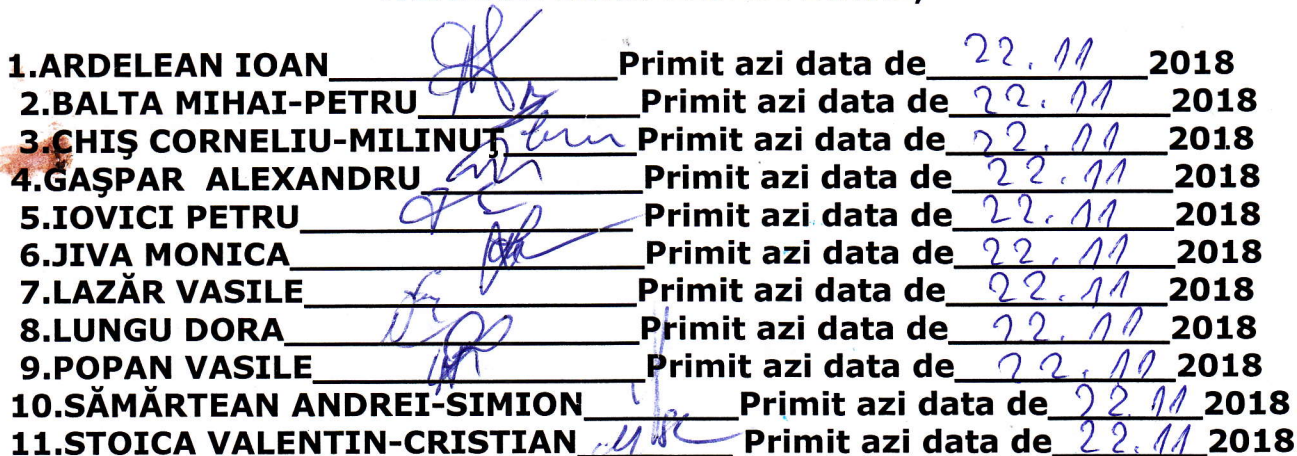 1.ARDELEAN IOAN____________Primit azi data de 22.11 2018
2.BALTA MIHAI-PETRU____________Primit azi data de 22.11 2018
3.CHIŞ CORNELIU-MILINUŢ____________Primit azi data de 22.11 2018
4.GĂŞPAR ALEXANDRU____________Primit azi data de 22.11 2018
5.IOVICI PETRU____________Primit azi data de 22.11 2018
6.JIVA MONICA____________Primit azi data de 22.11 2018
7.LAZĂR VASILE____________Primit azi data de 22.11 2018
8.LUNGU DORA____________Primit azi data de 22.11 2018
9.POPAN VASILE____________Primit azi data de 22.11 2018
10.SĂMĂRTEAN ANDREI-SIMION____________Primit azi data de 22.11 2018
11.STOICA VALENTIN-CRISTIAN____________Primit azi data de 22.11 2018